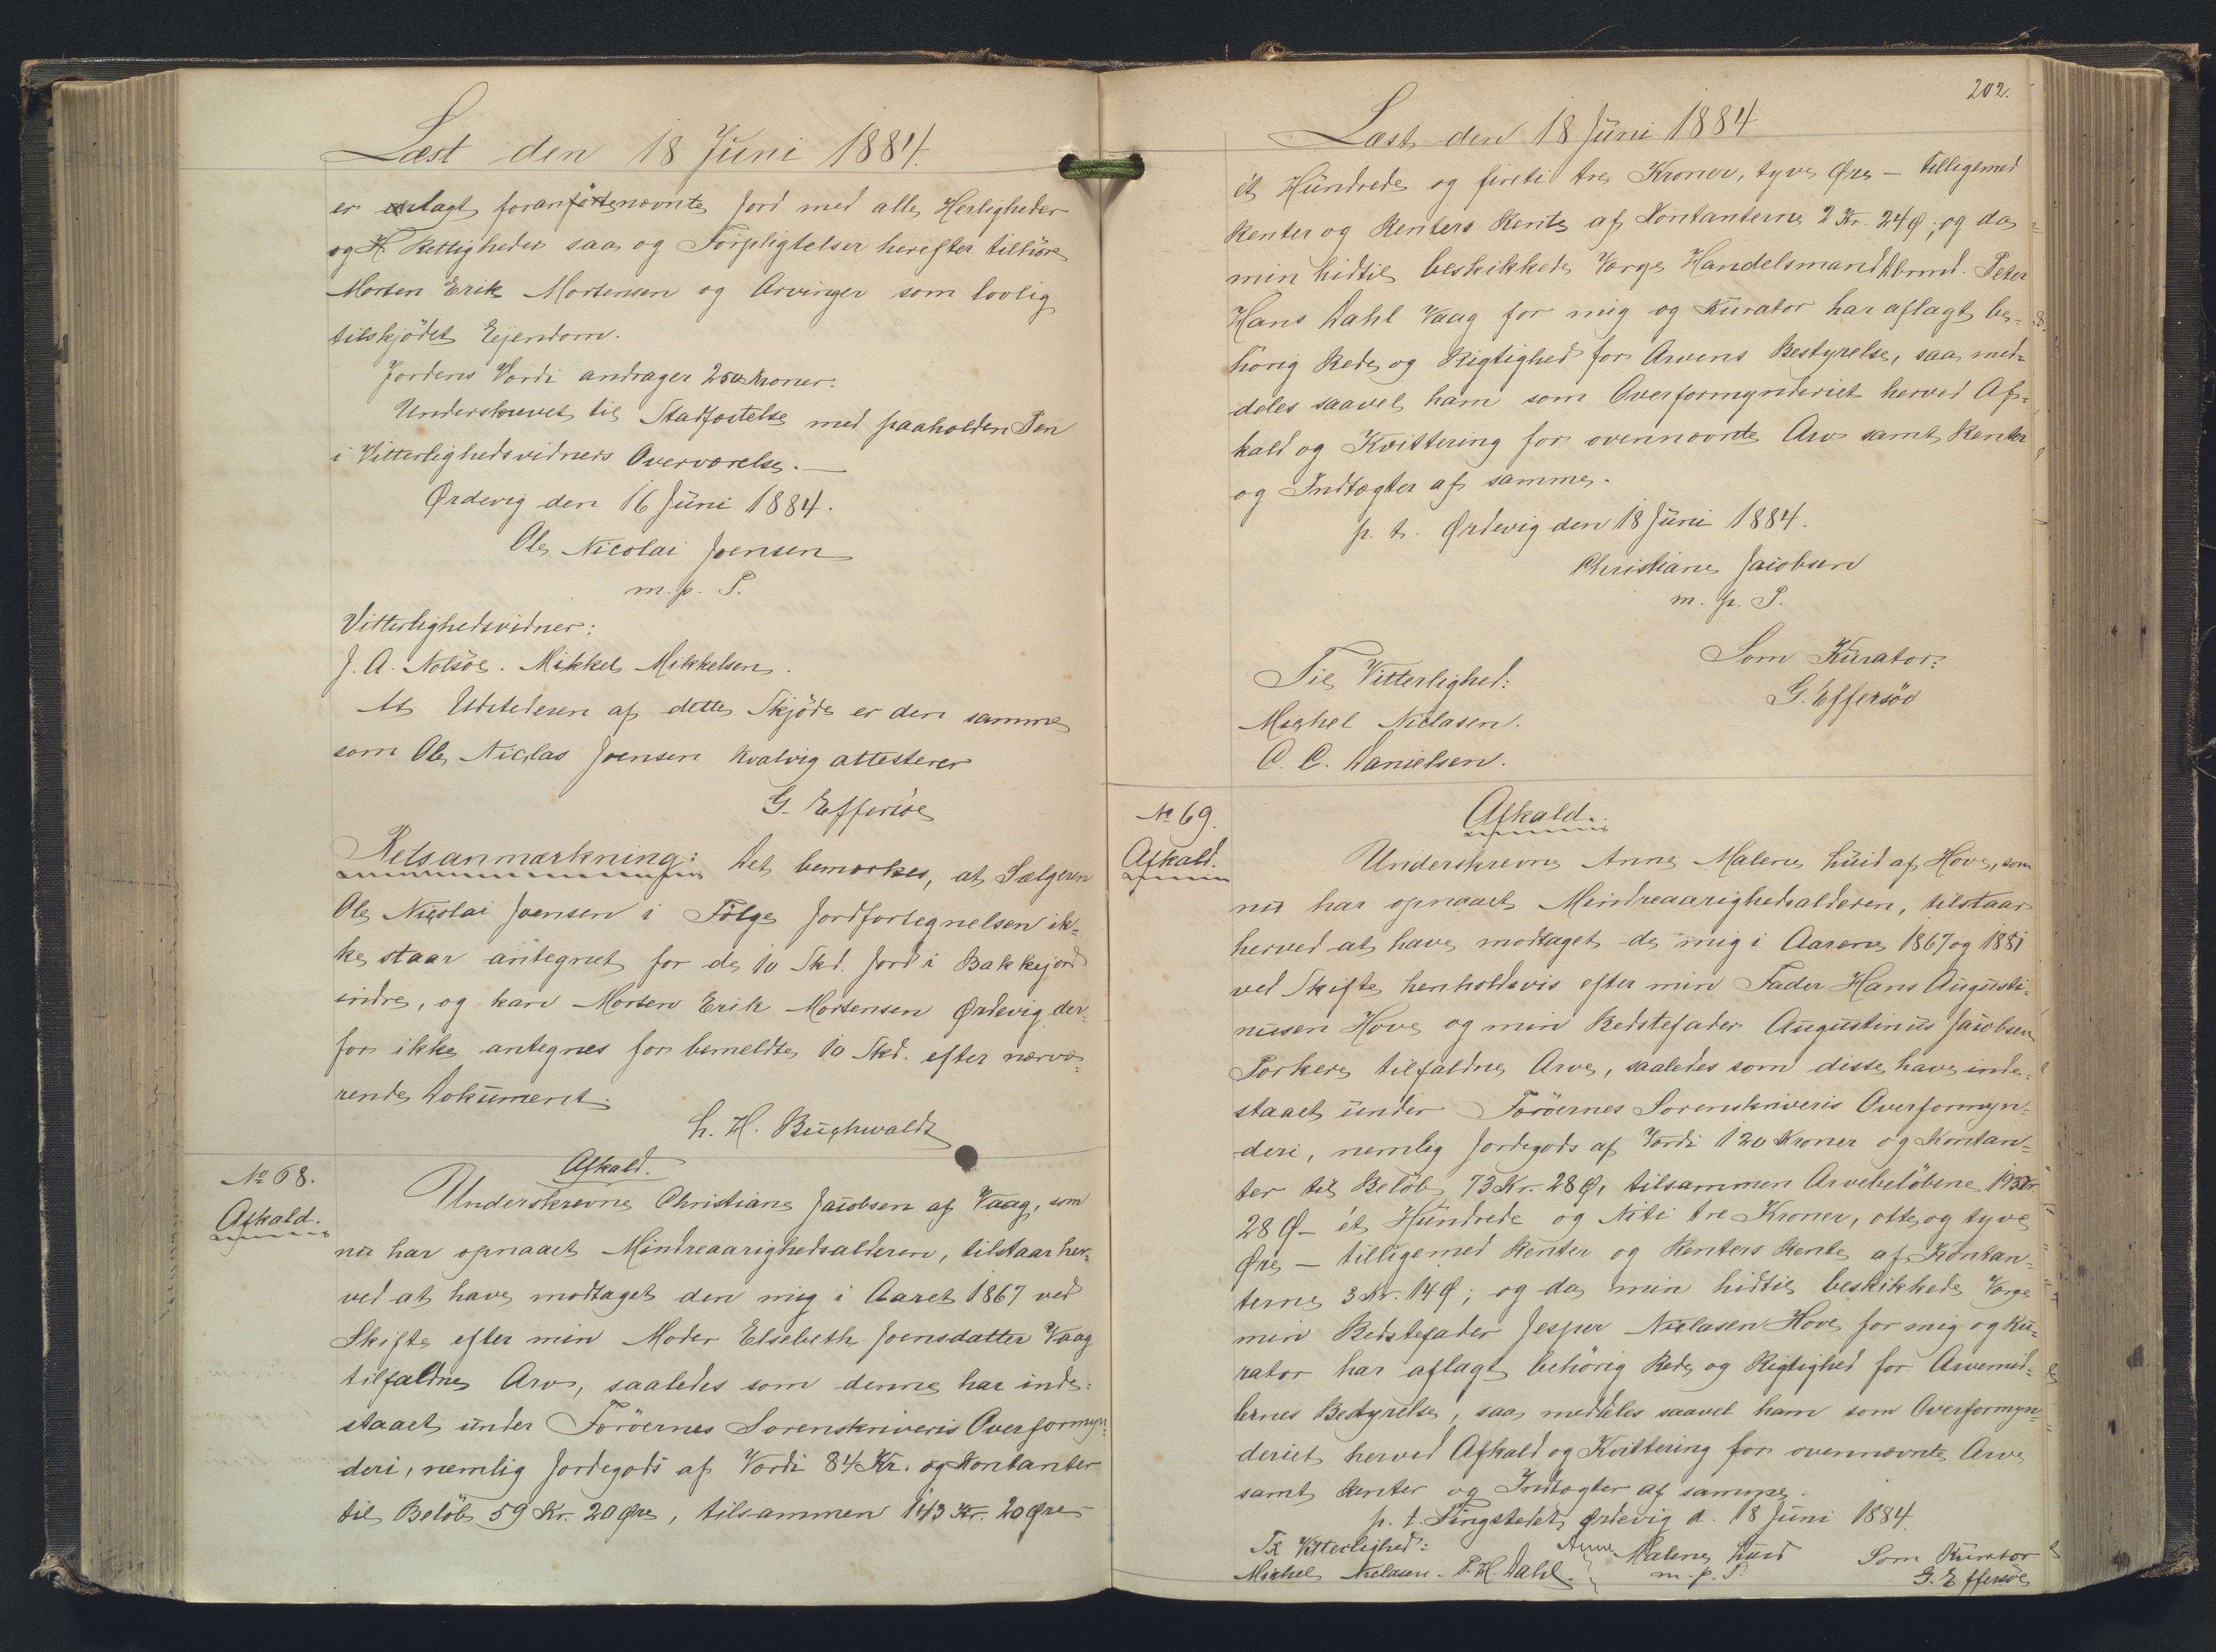 Læst den 18 Juni 1884.
er erlagt foranførtenævnte Jord med alle Herligheder
og H. Rettigheder saa og Forpligtelser herefter tilhøre
Morten Erik Mortensen og Arvinger som lovlig
tilskjødet Ejendom.
Jordens Værdi andrager 250 Kroner.
Underskrevet til Stadfæstelse med paaholden Pen
i Vitterlighedsvidners Overværelse. —
Ørdevig den 16 Juni 1884.
Ole Nicolai Joensen
m. p. P.
Vitterlighedsvidner:
J. A. Nolsøe. Mikkel Mikkelsen.
At Udstederen af dette Skjøde er den samme
som Ole Niclas Joensen Kvalvig attesterer
G. Effersøe
Retsanmærkning: Det bemærkes, at Sælgeren
Ole Nicolai Joensen i Følge Jordfortegnelsen ik=
ke staar antegnet for de 10 Skd. Jord i Bakkejord
indre, og kan Morten Erik Mortensen Ørdevig der=
for ikke antegnes for bemeldte 10 Skd. efter nærvæ=
rende Dokument.
L. H. Buchwaldt
No 68.
Afkald.
Afkald.
Underskrevne Christiane Jacobsen af Vaag, som
nu har opnaaet Mindreaarighedsalderen, tilstaar her=
ved at have modtaget den mig i Aaret 1867 ved
Skifte efter min Moder Elsebeth Joensdatter Vaag
tilfaldne Arv, saaledes som denne har inde=
staaet under Færøernes Sorenskriveris Overformyn=
deri, nemlig Jordegods af Værdi 84 Kr. og Kontanter
til Beløb 59 Kr. 20 Øre, tilsammen 143 Kr. 20 Øre
202.
Læst den 18 Juni 1884
ét Hundrede og fireti tre Kroner, tyve Øre — tilligemed
Renter og Renters Rente af Kontanterne 2 Kr. 24 Ø; og da
min hidtil beskikkede Værge Handelsmand Dbrmd. Peter
Hans Dahl Vaag for mig og Kurator har aflagt be=
hørig Rede og Rigtighed for Arvens Bestyrelse, saa med=
deles saavel ham som Overformynderiet herved Af=
kald og Kvittering for ovennævnte Arv samt Renter
og Indtægter af samme.
p. t. Ørdevig den 18 Juni 1884.
Christiane Jacobsen
m. p. P.
Som Kurator:
G. Effersøe
Til Vitterlighed:
Michel Niclasen.
C. C. Danielsen.
No 69.
Afkald.
Afkald.
Underskrevne Anne Malene Huid af Hove, som
nu har opnaaet Mindreaarighedsalderen, tilstaar
herved at have modtaget de mig i Aarene 1867 og 1881
ved Skifte henholdsvis efter min Fader Hans Augusti=
nusen Hove og min Bedstefader Augustinus Jacobsen
Porkere tilfaldne Arve, saaledes som disse have inde=
staaet under Færøernes Sorenskriveris Overformyn=
deri, nemlig Jordegods af Værdi 120 Kroner og Kontan=
ter til Beløb 73 Kr. 28 Ø, tilsammen Arvebeløbene 193 Kr
28 Ø — ét Hundrede og Niti tre Kroner, otte og tyve
Øre — tilligemed Renter og Renters Rente af Kontan=
terne 3 Kr. 14 Ø; og da min hidtil beskikkede Værge
min Bedstefader Jesper Niclasen Hove for mig og Ku=
rator har aflagt behørig Rede og Rigtighed for Arvemid=
lernes Bestyrelse, saa meddeles saavel ham som Overformyn=
deriet herved Afkald og Kvittering for ovennævnte Arve
samt Renter og Indtægter af samme.
p. t. Tingstedet Ørdevig d. 18 Juni 1884.
Til Vitterlighed: Anne Malene Huid Som Kurator
Michel Niclasen. P. H. Dahl. m. p. P. G. Effersøe